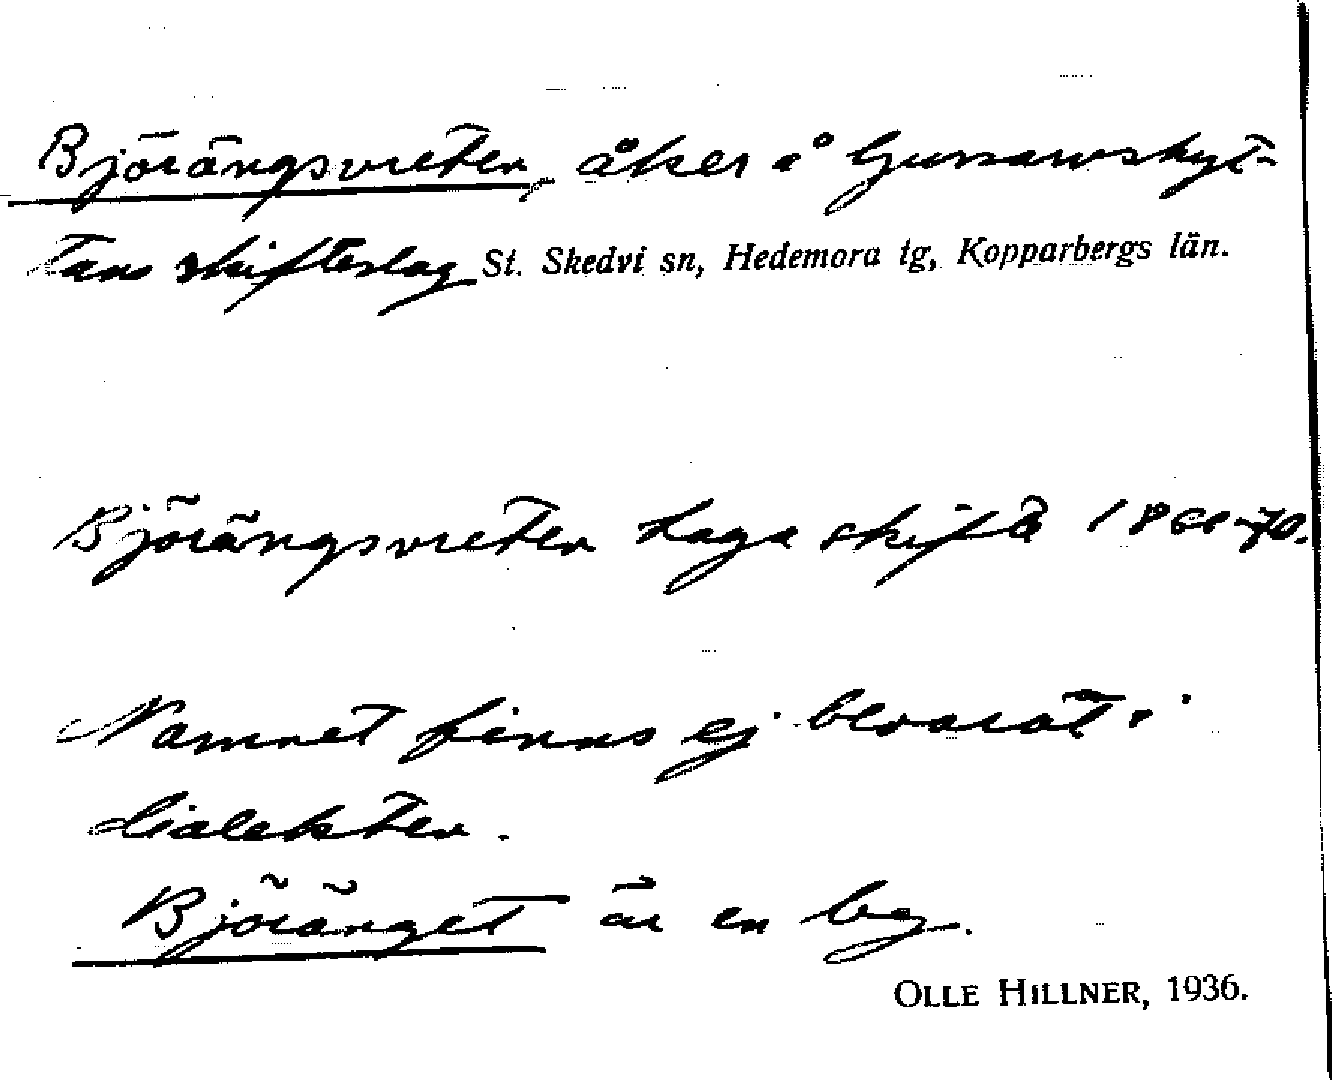 Björängsvreten, åker å Gussarvshyt-
tans skifteslag St. Skedvi sn, Hedemora tg, Kopparbergs län.
Björängsvreten Laga skifte 1868-70.
Namnet finns ej bevarat i
dialekten.
Björänget är en by.
OLLE HILLNER, 1936.